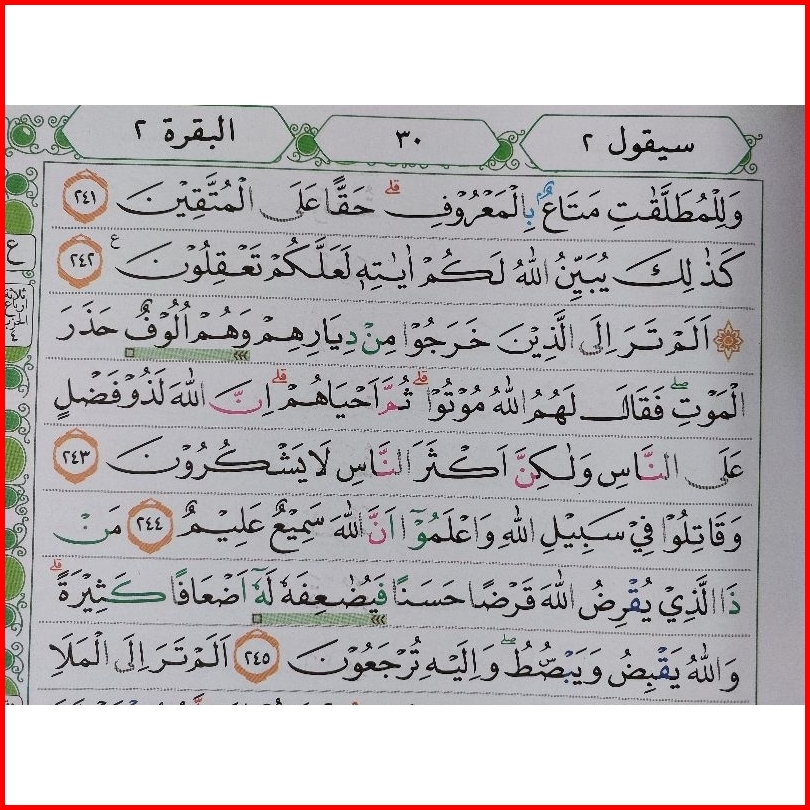 سيقول ٢
٣٠
البقرة ٢
وَلِلْمُطَلَّقٰتِ مَتَاعٌۢ بِالْمَعْرُوْفِ ۗ حَقًّا عَلَى الْمُتَّقِيْنَ ٢٤١
كَذٰلِكَ يُبَيِّنُ اللّٰهُ لَكُمْ اٰيٰتِهٖ لَعَلَّكُمْ تَعْقِلُوْنَ ع ٢٤٢
اَلَمْ تَرَ اِلَى الَّذِيْنَ خَرَجُوْا مِنْ دِيَارِهِمْ وَهُمْ اُلُوْفٌ حَذَرَ
الْمَوْتِۖ فَقَالَ لَهُمُ اللّٰهُ مُوْتُوْا ۗ ثُمَّ اَحْيَاهُمْ ۗ اِنَّ اللّٰهَ لَذُوْ فَضْلٍ
عَلَى النَّاسِ وَلٰكِنَّ اَكْثَرَ النَّاسِ لَا يَشْكُرُوْنَ ٢٤٣
وَقَاتِلُوْا فِيْ سَبِيْلِ اللّٰهِ وَاعْلَمُوْٓا اَنَّ اللّٰهَ سَمِيْعٌ عَلِيْمٌ ٢٤٤ مَنْ
ذَا الَّذِيْ يُقْرِضُ اللّٰهَ قَرْضًا حَسَنًا فَيُضٰعِفَهٗ لَهٗٓ اَضْعَافًا كَثِيْرَةً ۗ
وَاللّٰهُ يَقْبِضُ وَيَبْصُۣطُۖ وَاِلَيْهِ تُرْجَعُوْنَ ٢٤٥ اَلَمْ تَرَ اِلَى الْمَلَاِ
ع
ثلاثة
ارباع
الحزب
٤